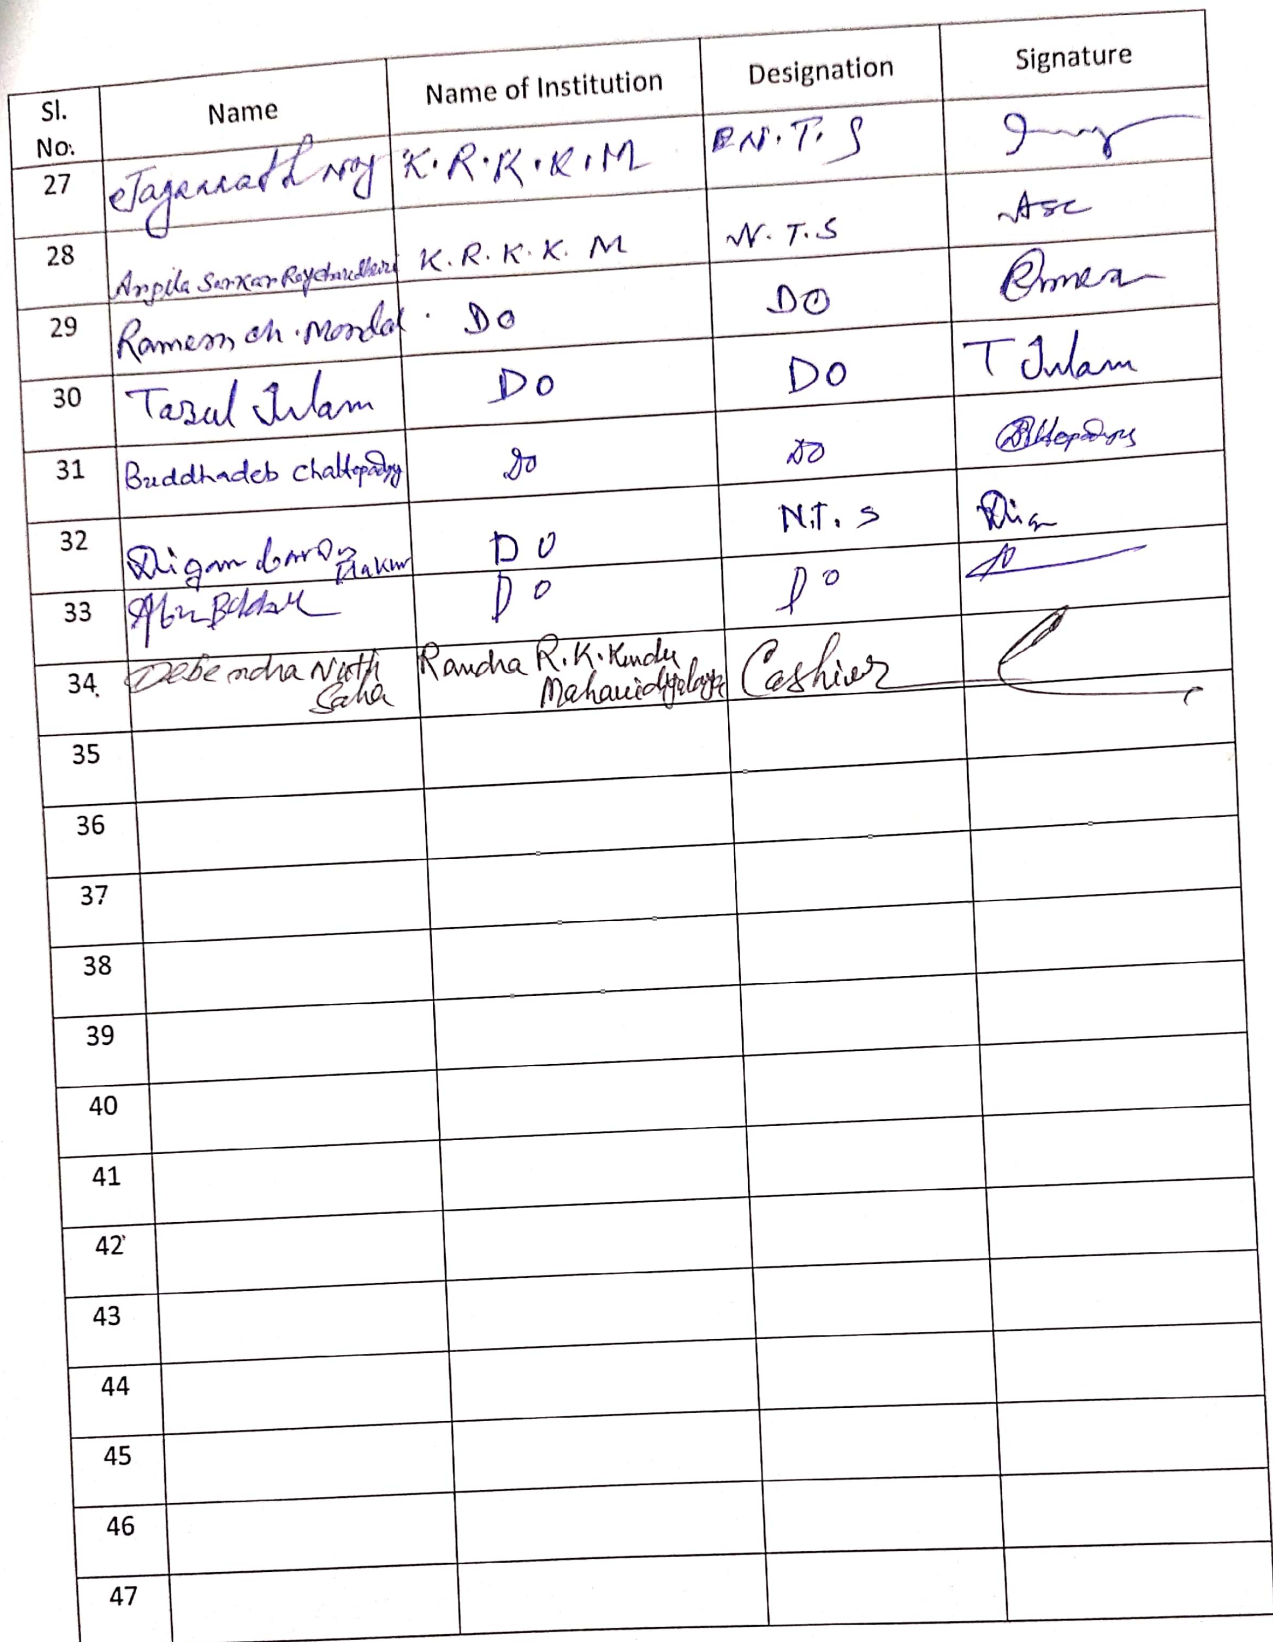 Sl. No. Name Name of Institution Designation Signature
27 Jagannath Roy K.R.K.K.M N.T.S
28 Angila Sarkar Roychaudhuri K.R.K.K.M N.T.S Asc
29 Ramesh ch. Mondal DO DO
30 Tazul Islam DO DO T Islam
31 Buddhadeb Chattopadhyay DO DO
32 Thakur DO N.T.S
33 Abu DO DO
34. Debendra Nath Saha R.K.Kundu Mahavidyalaya Cashier
35
36
37
38
39
40
41
42
43
44
45
46
47